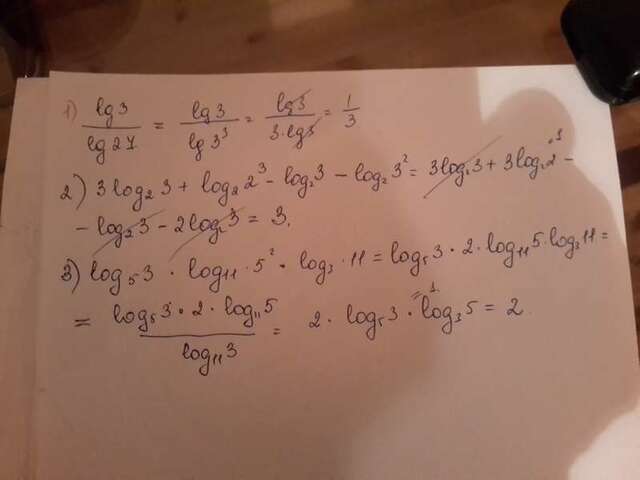 1) lg3/lg27 = lg3/lg3³ = lg3/3·lg3 = 1/3
2) 3log₂3 + log₂2³ - log₂3 - log₂3² = 3log₂3 + 3log₂2 -
- log₂3 - 2log₂3 = 3.
3) log₅3 · log₁₁·5² · log₃·11 = log₅3 · 2 · log₁₁5·log₃11 =
= log₅3 · 2 · log₁₁5/log₁₁3 = 2 · log₅3 · log₃5 = 2.